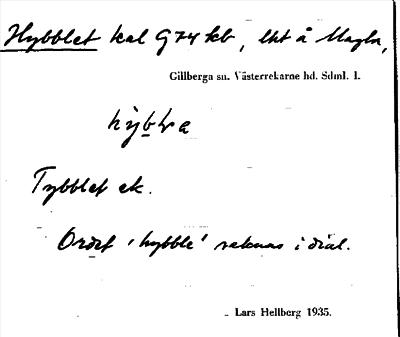 Hybblet kal G74 kb, lht å Magla,
Gillberga sn. Västerrekarne hd. Sdml. l.
Tybblet ek.
Ordet 'hybble' saknas i dial.
Lars Hellberg 1935.